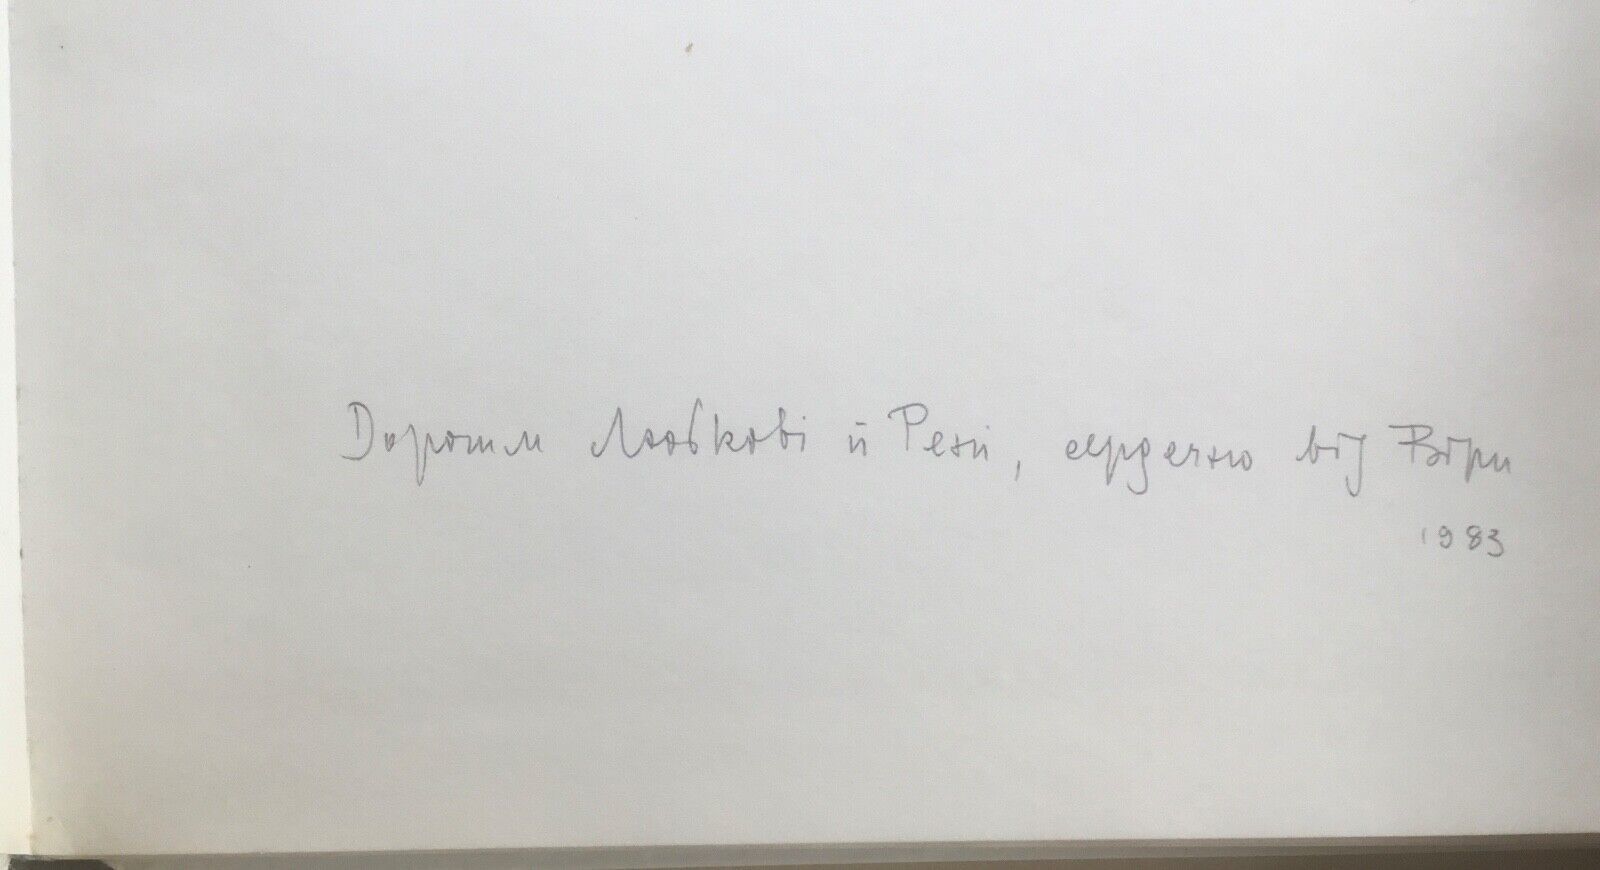 Дорогим Любкові й Рені, сердечно від Віри
1983